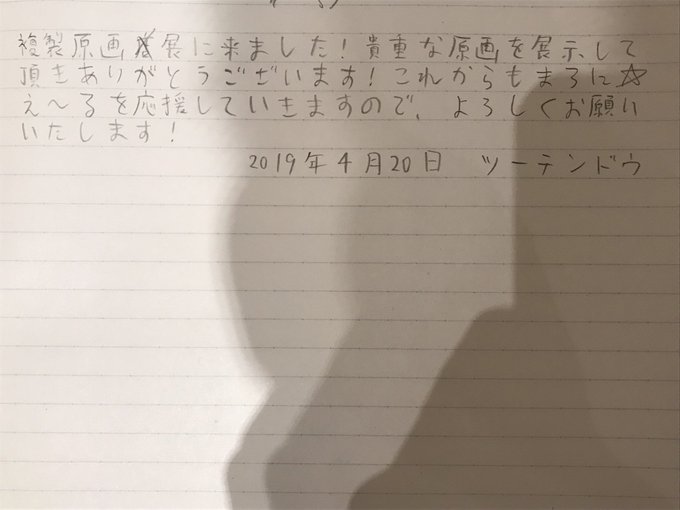 複製原画展に来ました!貴重な原画を展示して
頂きありがとうございます!これからもまろに☆
え〜るを応援していきますので、よろしくお願い
いたします!
2019年4月20日 ツーテンドウ